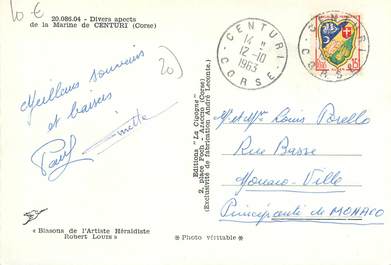 10 €
20.086.04 - Divers aspects
de la Marine de CENTURI (Corse)
20)
Meilleurs souvenirs
et baisers
Paul
Ginette
« Blasons de l'Artiste Héraldiste
Robert LOUIS »
Editions "La Cigogne"
2, place Foch - Ajaccio (Corse)
(Exclusivité de fabrication André Leconte.)
* Photo véritable *
CENTURI
14 H
12-10
1963
CORSE
CENTURI
CORSE
15
Mr et Mme Louis Porello
Rue Basse
Monaco-Ville
Principauté de MONACO